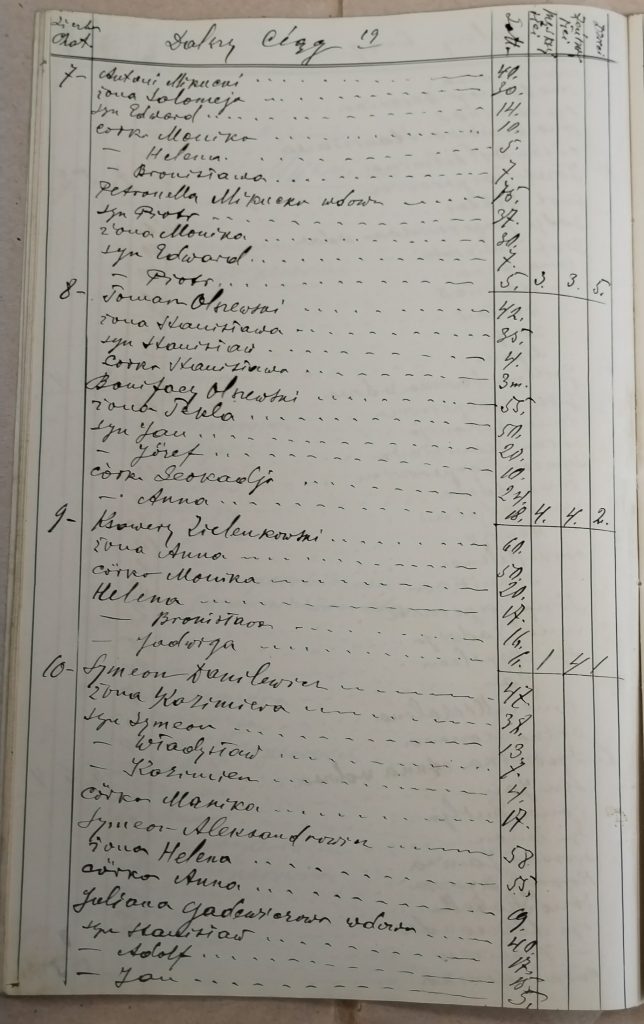 Liczba Chat. Dalszy Ciąg 19 Lata Męsk. Pici Żeńsk. Pici
7- Antoni Mikucki 40.
żona Salomeja 30.
syn Edward 14.
córka Monika 10.
— Helena 5.
— Bronisława 7.
Petronella Mikucka wdowa 75.
syn Piotr 37.
żona Monika 30.
syn Edward 7.
— Piotr 5. 3. 3. 5.
8- Tomasz Olszewski 42.
żona Stanisława 35.
syn Stanisław 4.
córka Stanisława 3m.
Bonifacy Olszewski 55.
żona Tekla 50.
syn Jan 20.
— Józef 10.
córka Leokadja 24.
— Anna 18. 4. 4. 2.
9- Ksawery Zielenkowski 60.
żona Anna 50.
córka Monika 20.
Helena 17.
— Bronisława 16.
— Jadwiga 11. 1 4 1
10- Symeon Danilewicz 47.
żona Kazimiera 38.
syn Symeon 13.
— Władysław 7.
— Kazimierz 4.
córka Manika 17.
Symeon Aleksandrowicz 58
żona Helena 55.
córka Anna 9.
Juliana Gadewiczowa wdowa 40.
syn Stanisław 17.
— Adolf 15
— Jan 5.